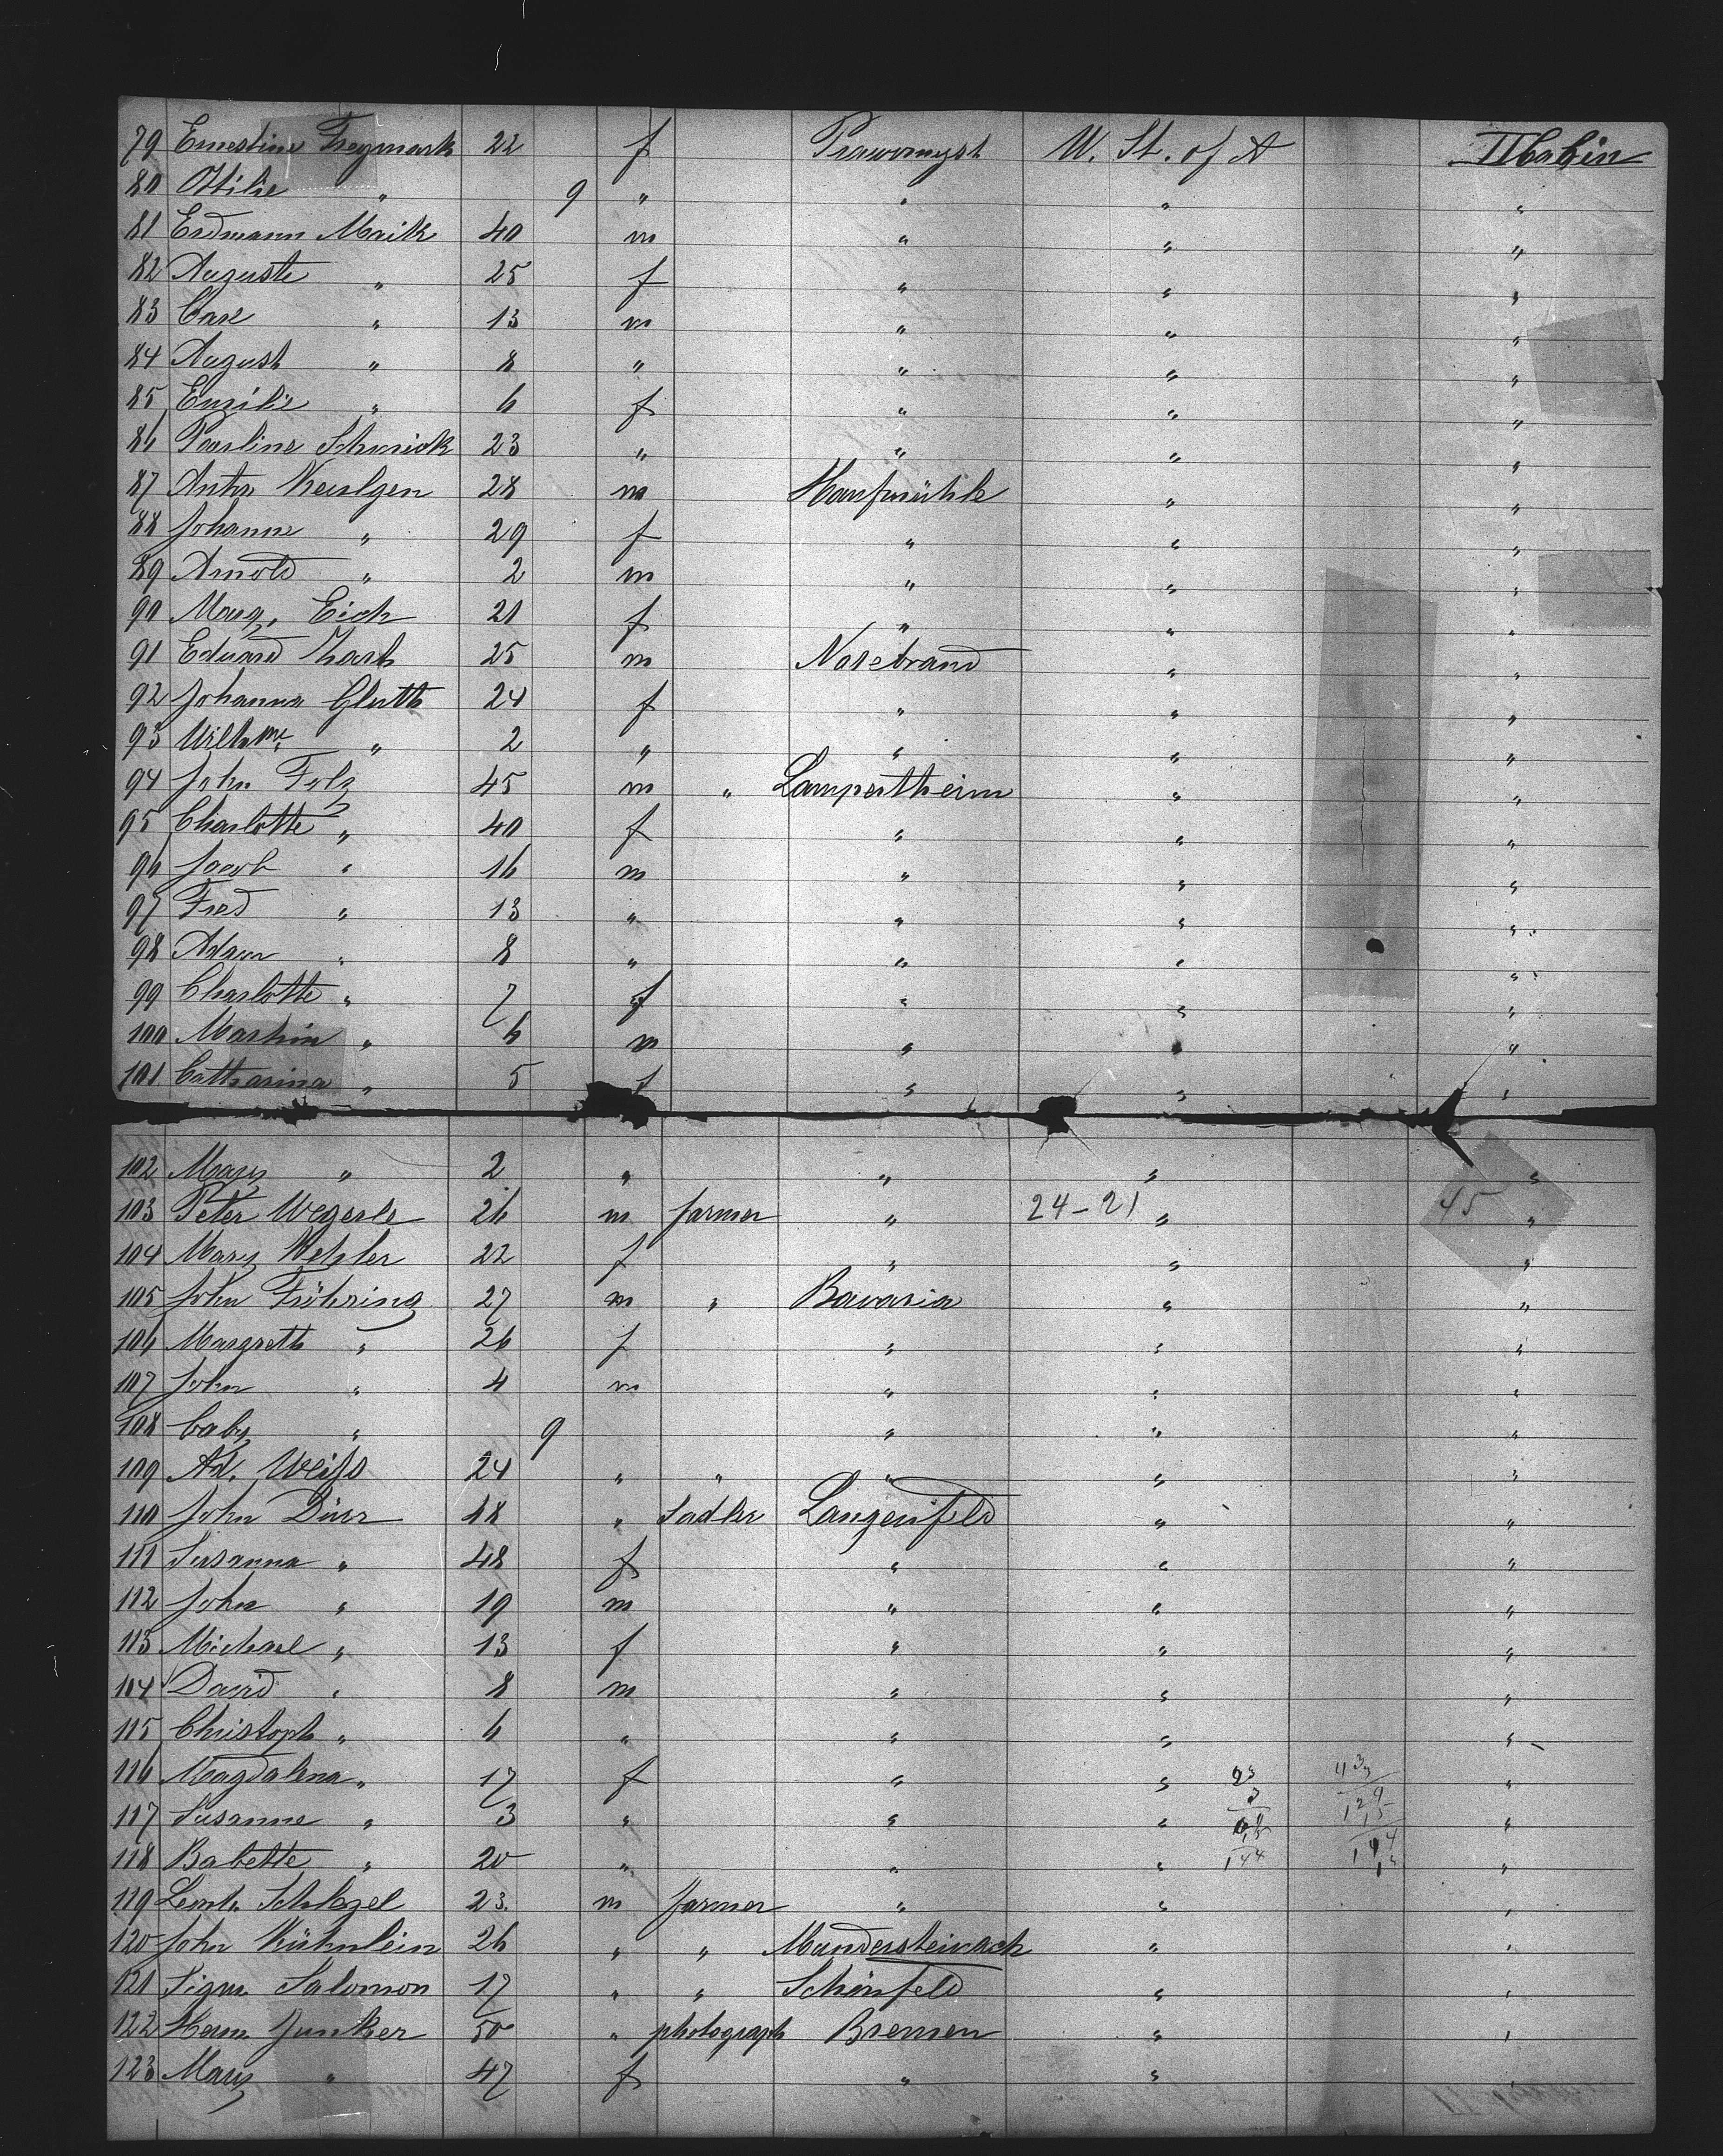 79 Ernestine Freymark 22 f Prawomyst U. St. of A II Cabin
80 Ottilie " 9 " " " "
81 Erdmann Maik 40 m " " "
82 Auguste " 25 f " " "
83 Carl " 13 m " " "
84 August " 8 " " " "
85 Emilie " 6 f " " "
86 Pauline Schmidt 23 " " " "
87 Anton Keulgen 28 m " "
88 Johanne " 29 f " " "
89 Arnold " 2 m " " "
90 Marg. Eich 21 f " " "
91 Eduard 25 m Nosebrand " "
92 Johanna Gluth 24 f " " "
93 Wilhme. " 2 " " " "
94 John Folz 45 m " Lampertheim " "
95 Charlotte " 40 f " " "
96 Jacob " 16 m " " "
97 Fred " 13 " " " "
98 Adam " 8 " " " "
99 Charlotte " 7 f " " "
100 Martin " 6 m " " "
101 Catharina " 5 f " " "
102 Mary " 2 " " " "
103 Peter Wegerle 26 m farmer " 24-21 " 45 "
104 Mary Wehler 22 f " " "
105 John Fröhring 27 m " Bavaria " "
106 Margreth " 26 f " " "
107 John " 4 m " " "
108 baby " 9 " " "
109 Ad. Weiß 24 " " " " "
110 John Dürr 48 " Sadler Langenfeld " "
111 Susanna " 48 f " " "
112 John " 19 m " " "
113 Michael " 13 f " " "
114 David " 8 m " " "
115 Christoph " 6 " " " "
116 Magdalena " 17 f " " "
117 Susanne " 3 " " " "
118 Babette " 20 " " " 144 "
119 23. m farmer " " "
120 John Kühnlein 26 " " Mundersteinach " "
121 Sigm. Salomon 17 " " Schönfeld " "
122 Herm. Junker 50 " photograph Bremen " "
123 Mary " 47 f " " "